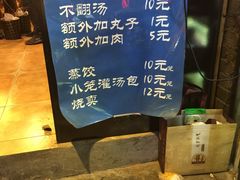 不翻汤 10元
额外加丸子 1元
额外加肉 5元
蒸饺 10元
小笼灌汤包 10元
烧卖 12元